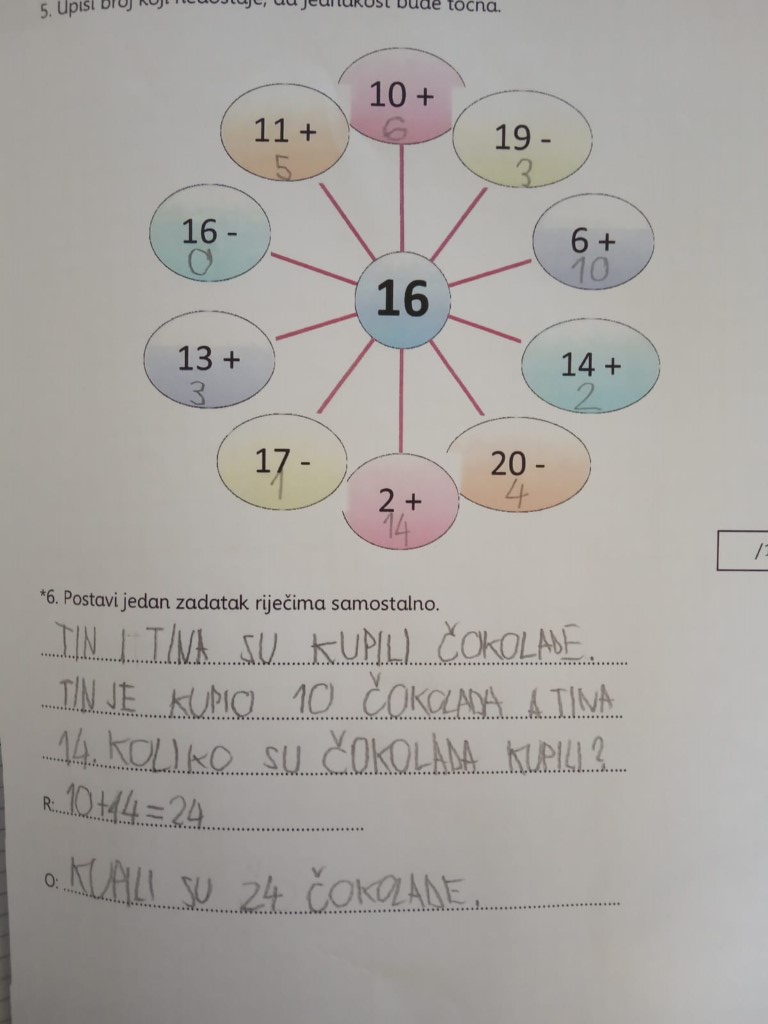 5. Upiši broj koji nedostaje, da jednakost bude točna.
10 +
6
11 +
5
19 -
3
16 -
0
6 +
10
16
13 +
3
14 +
2
17 -
1
20 -
4
2 +
14
/1
*6. Postavi jedan zadatak riječima samostalno.
TIN I TINA SU KUPILI ČOKOLADE.
TIN JE KUPIO 10 ČOKOLADA A TINA
14. KOLIKO SU ČOKOLADA KUPILI?
R: 10+14=24
O: KUPILI SU 24 ČOKOLADE.